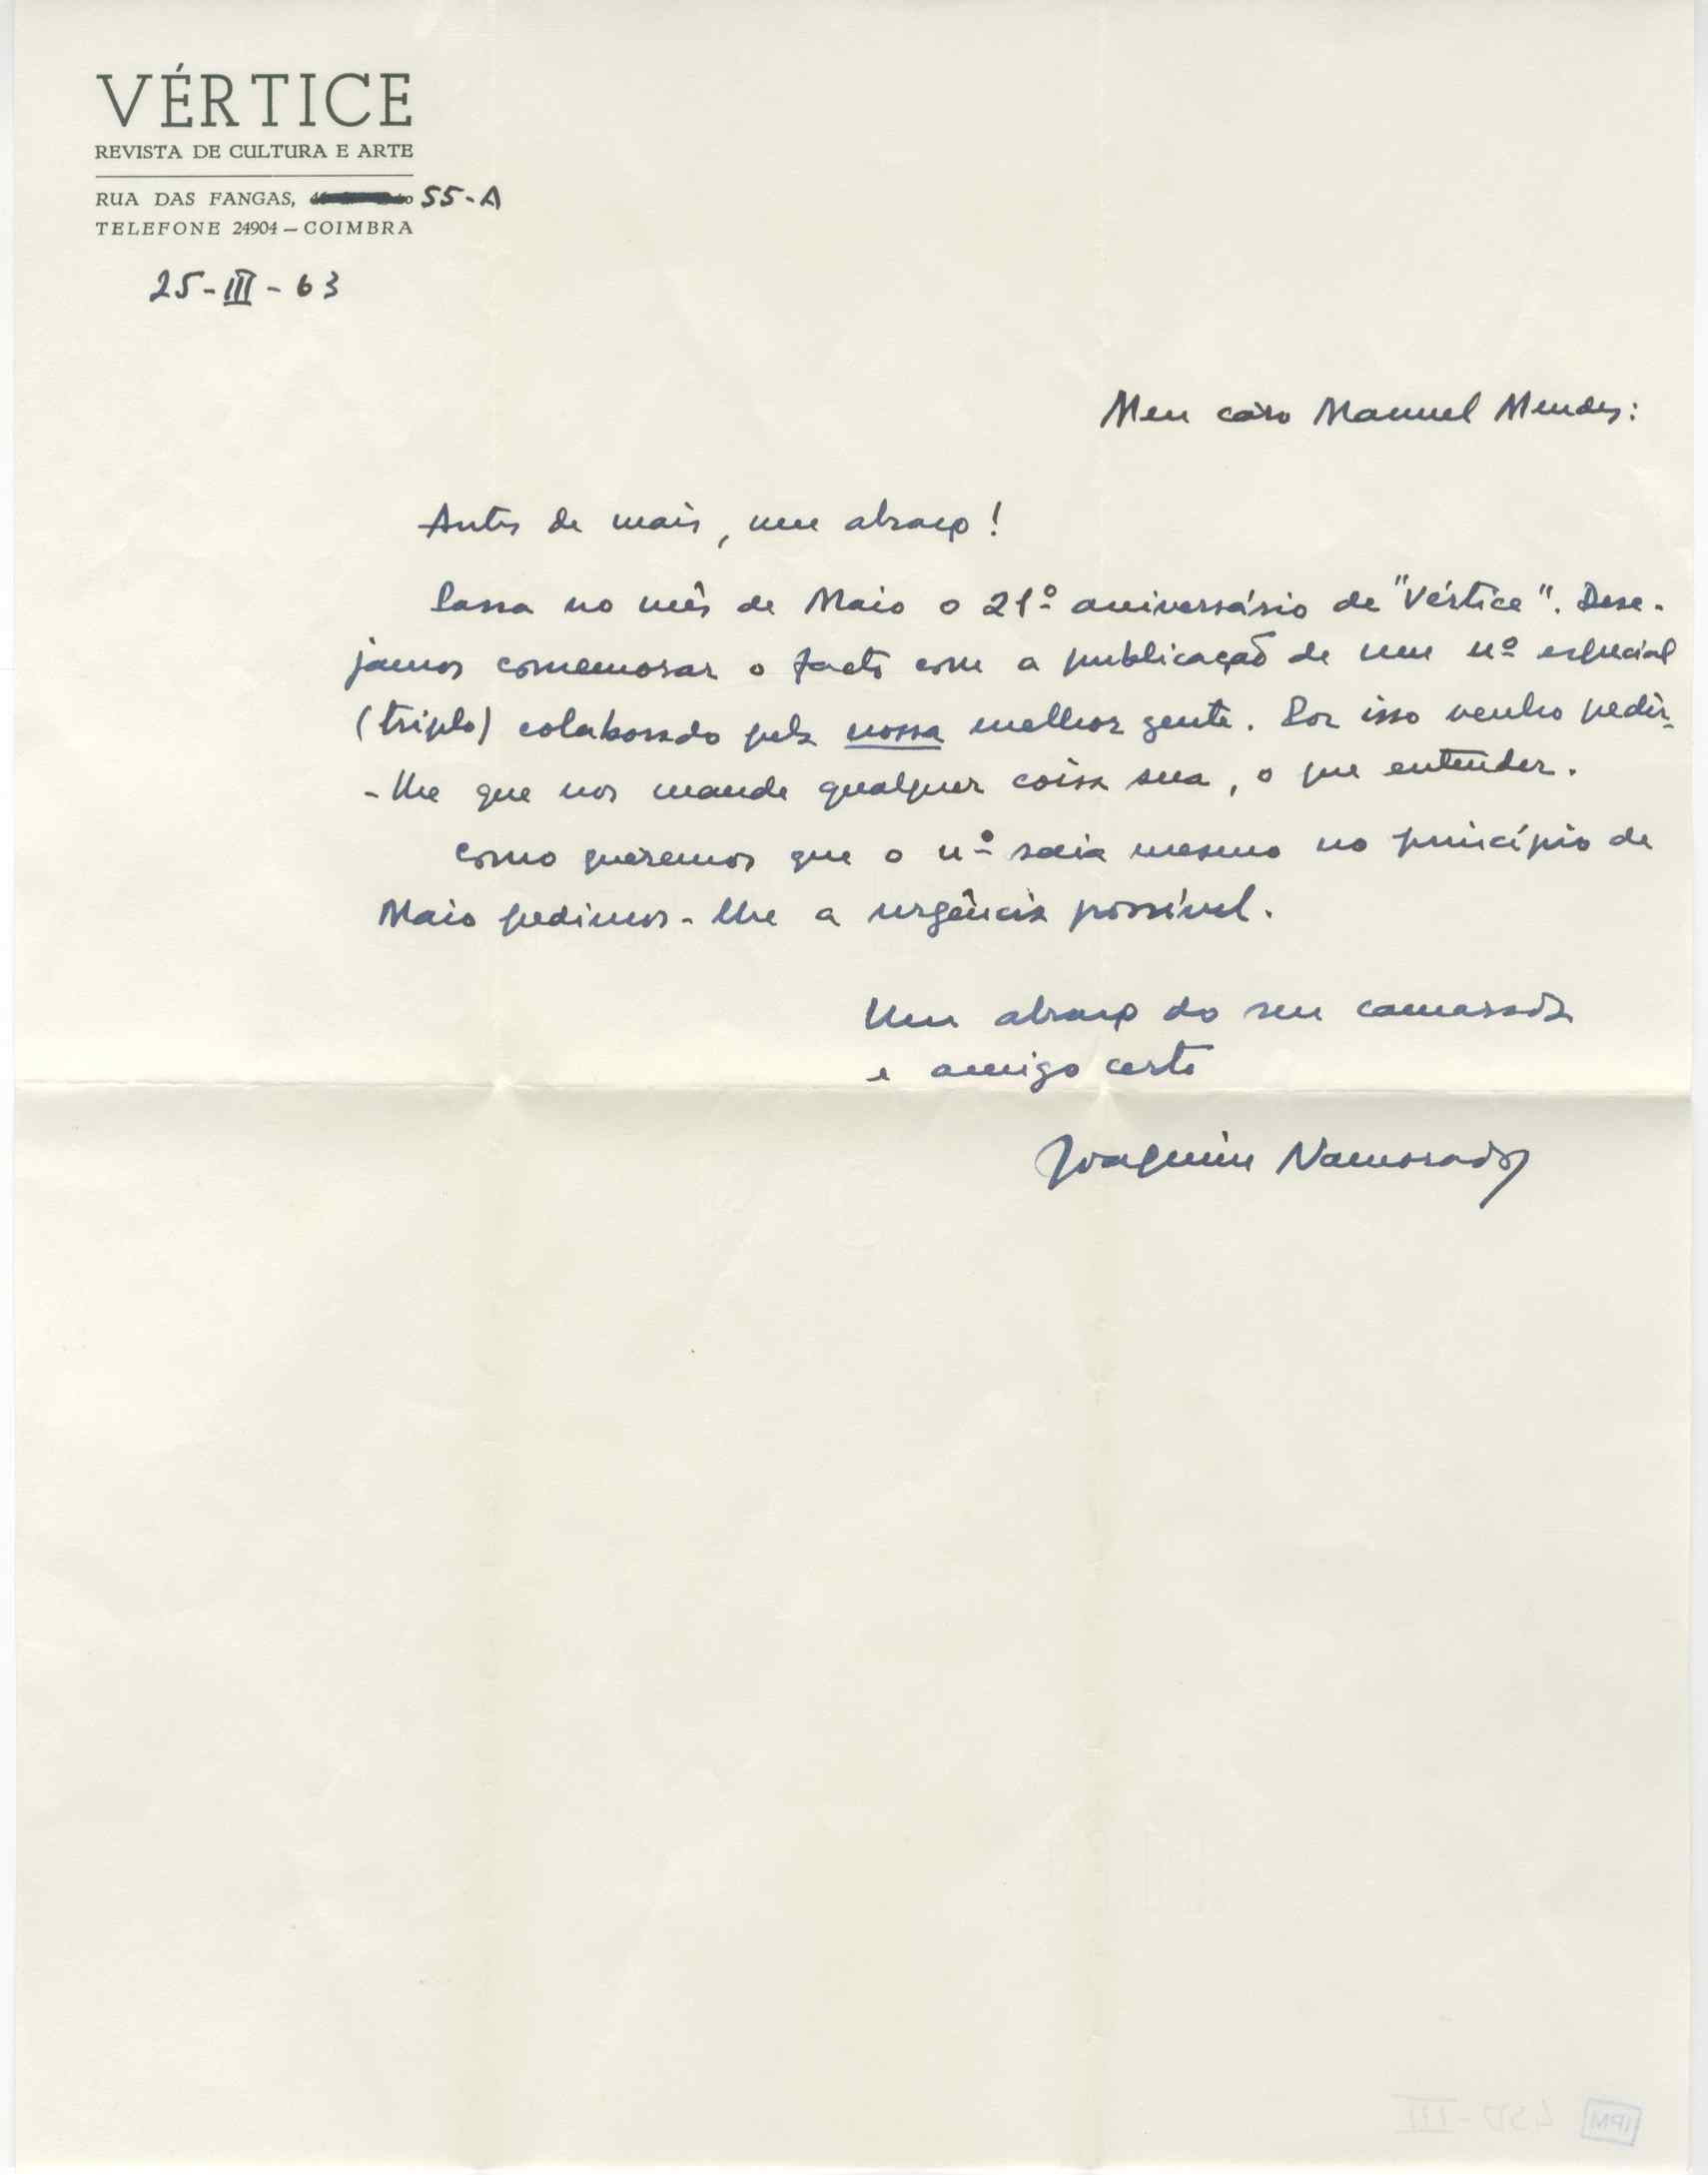 VÉRTICE
REVISTA DE CULTURA E ARTE
RUA DAS FANGAS, 55-A
TELEFONE 24904 – COIMBRA
25-III-63
Meu caro Manuel Mendes:
Antes de mais, um abraço!
Passa no mês de Maio o 21º aniversário de "Vértice". Dese-
jamos comemorar o facto com a publicação de um nº especial
(triplo) colaborado pela nossa melhor gente. Por isso venho pedir-
-lhe que nos mande qualquer coisa sua, o que entender.
Como queremos que o nº saia mesmo no princípio de
Maio pedimos-lhe a urgência possível.
Um abraço do seu camarada
e amigo certo
Joaquim Namorado